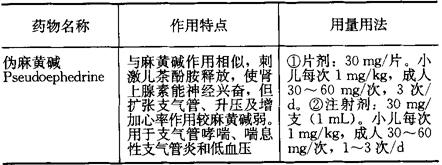 药物名称
作用特点
用量用法
伪麻黄碱
Pseudoephedrine
与麻黄碱作用相似，刺
激儿茶酚胺释放，使肾
上腺素能神经兴奋，但
扩张支气管、升压及增
加心率作用较麻黄碱弱。
用于支气管哮喘、喘息
性支气管炎和低血压
①片剂：30 mg/片。小
儿每次1 mg/kg，成人
30～60 mg/次，3 次/
d。②注射剂：30 mg/
支（1 mL）。小儿每次
1 mg/kg，成人 30～60
mg/次，1～3 次/d